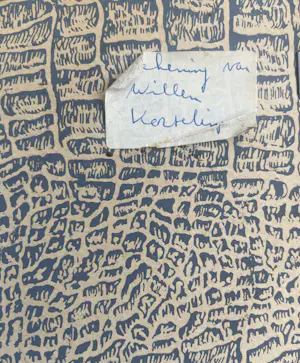 chening van
Willem
Korteling